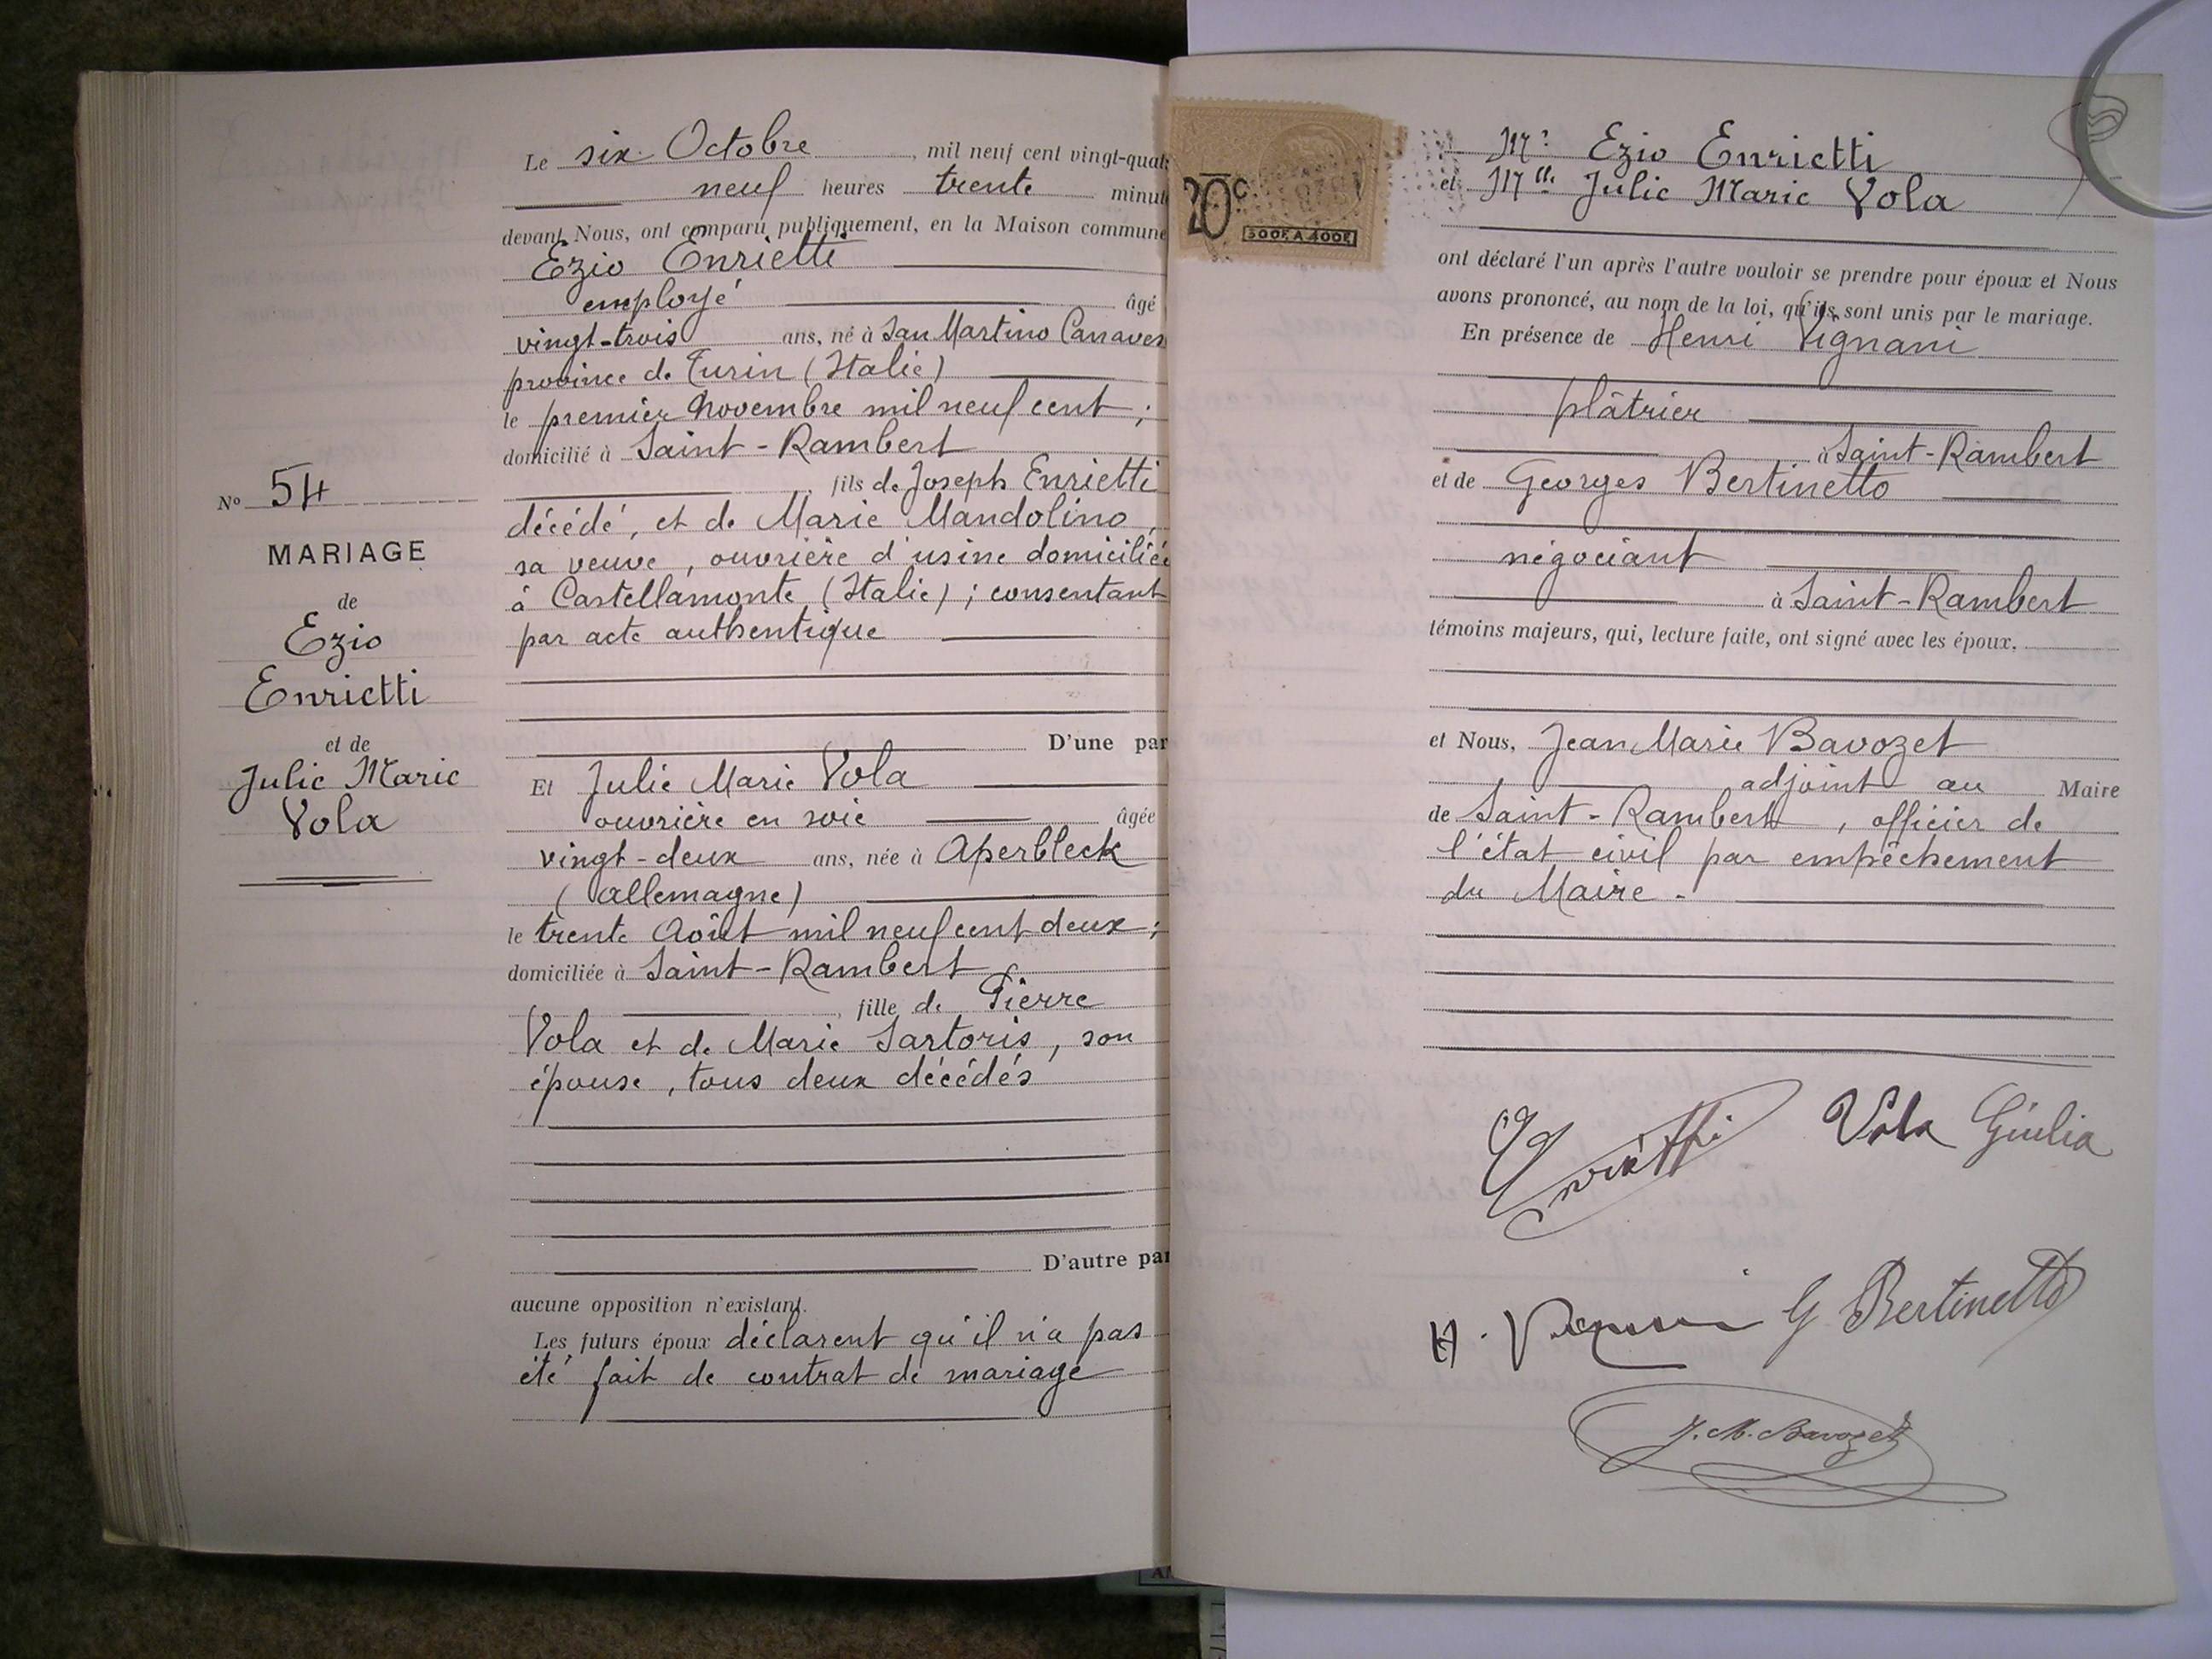 Le six Octobre, mil neuf cent vingt-quat
neuf heures trente minut
devant Nous, ont comparu publiquement, en la Maison commune
Ezio Enrietti
employé âgé
vingt-trois ans, né à San Martino Canaves
province de Turin (Italie)
le premier Novembre mil neuf cent ;
domicilié à Saint-Rambert
fils de Joseph Enrietti
décédé, et de Marie Mandolino,
sa veuve, ouvrière d'usine domiciliée
à Castellamonte (Italie) ; consentant
par acte authentique
D'une par
Nº 54
MARIAGE
de
Ezio
Enrietti
et de
Julie Marie
Vola
Et Julie Marie Vola
ouvrière en soie âgée
vingt-deux ans, née à Aperbleck
(Allemagne)
le trente Août mil neuf cent deux ;
domiciliée à Saint-Rambert
, fille de Pierre
Vola et de Marie Sartoris, son
épouse, tous deux décédés
D'autre par
aucune opposition n'existant.
Les futurs époux déclarent qu'il n'a pas
été fait de contrat de mariage
20 c
300F A 400F
Mr Ezio Enrietti
et Mlle Julie Marie Vola
ont déclaré l'un après l'autre vouloir se prendre pour époux et Nous
avons prononcé, au nom de la loi, qu'ils sont unis par le mariage.
En présence de Henri Vignani
plâtrier
à Saint-Rambert
et de Georges Bertinetto
négociant
à Saint-Rambert
témoins majeurs, qui, lecture faite, ont signé avec les époux.
et Nous, Jean Marie Bavozet
adjoint au Maire
de Saint-Rambert, officier de
l'état civil par empêchement
du Maire.
Enrietti Vola Giulia
H. Vignani G Bertinetto
J. M. Bavozet